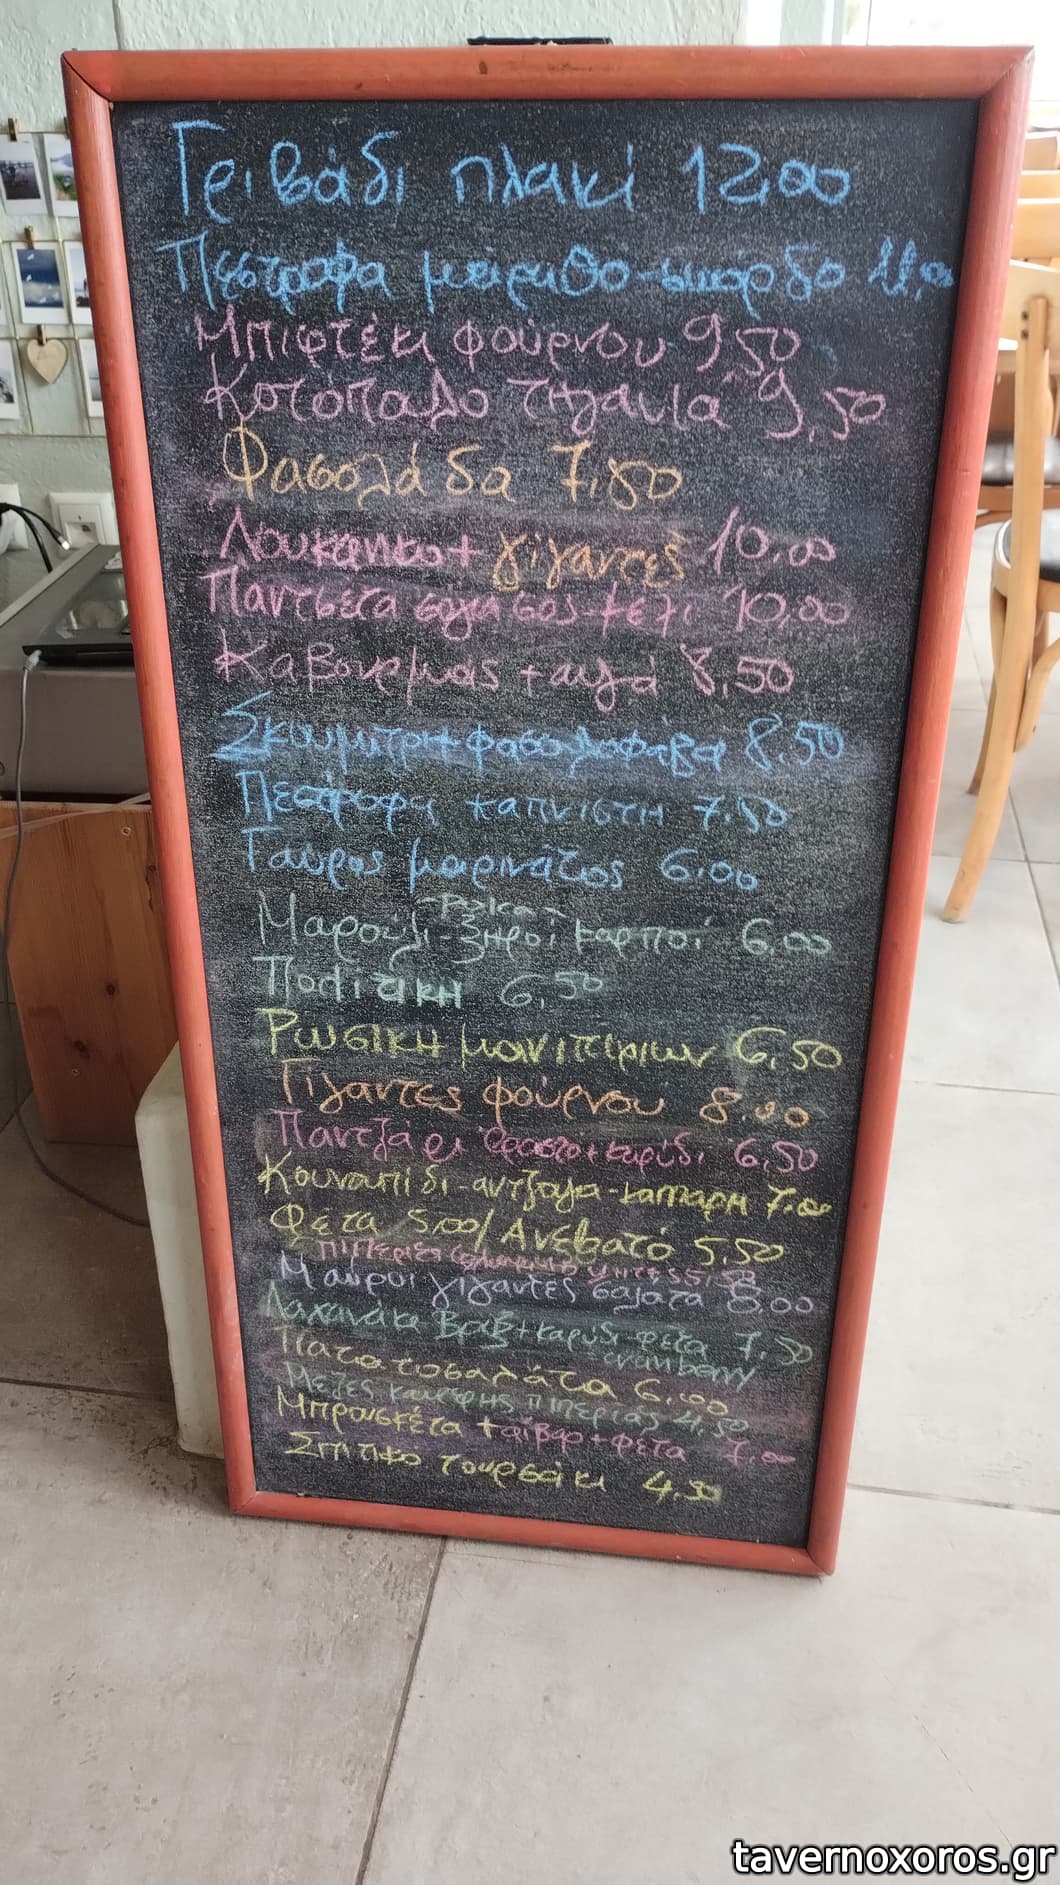 Γριβάδι πλακί 12,00
Πέστροφα μάραθο-σκόρδο 11,00
Μπιφτέκι φούρνου 9,50
Κοτόπουλο τηγανιά 9,50
Φασολάδα 7,50
Λουκάνικο + γίγαντες 10,00
Παντσέτα σόγια σος μέλι 10,00
Καβουρμάς + αυγά 8,50
Σκουμπρί + φασόλα φάβα 8,50
Πέστροφα καπνιστή 7,50
Γαύρος μαρινάτος 6.00
-ρόκα-
Μαρούλι ξηροί καρποί 6,00
Πολίτικη 6,50
Ρώσικη μανιταριών 6,50
Γίγαντες φούρνου 8.00
Παντζάρι + καρύδι 6,50
Κουνουπίδι-αντζούγια-κάππαρη 7.00
Φέτα 5,00/Ανεβατό 5,50
Μαύροι γίγαντες σαλάτα 8,00
Λαχανάκια Βρυξ + καρύδι-φέτα 7,50
cranberry
Πατατοσαλάτα 6,00
Μεζές καυτερής πιπεριάς 4,50
Μπρουσκέτα + αϊβάρ + φέτα 7,00
Σπιτικό τουρσάκι 4,50
tavernoxoros.gr